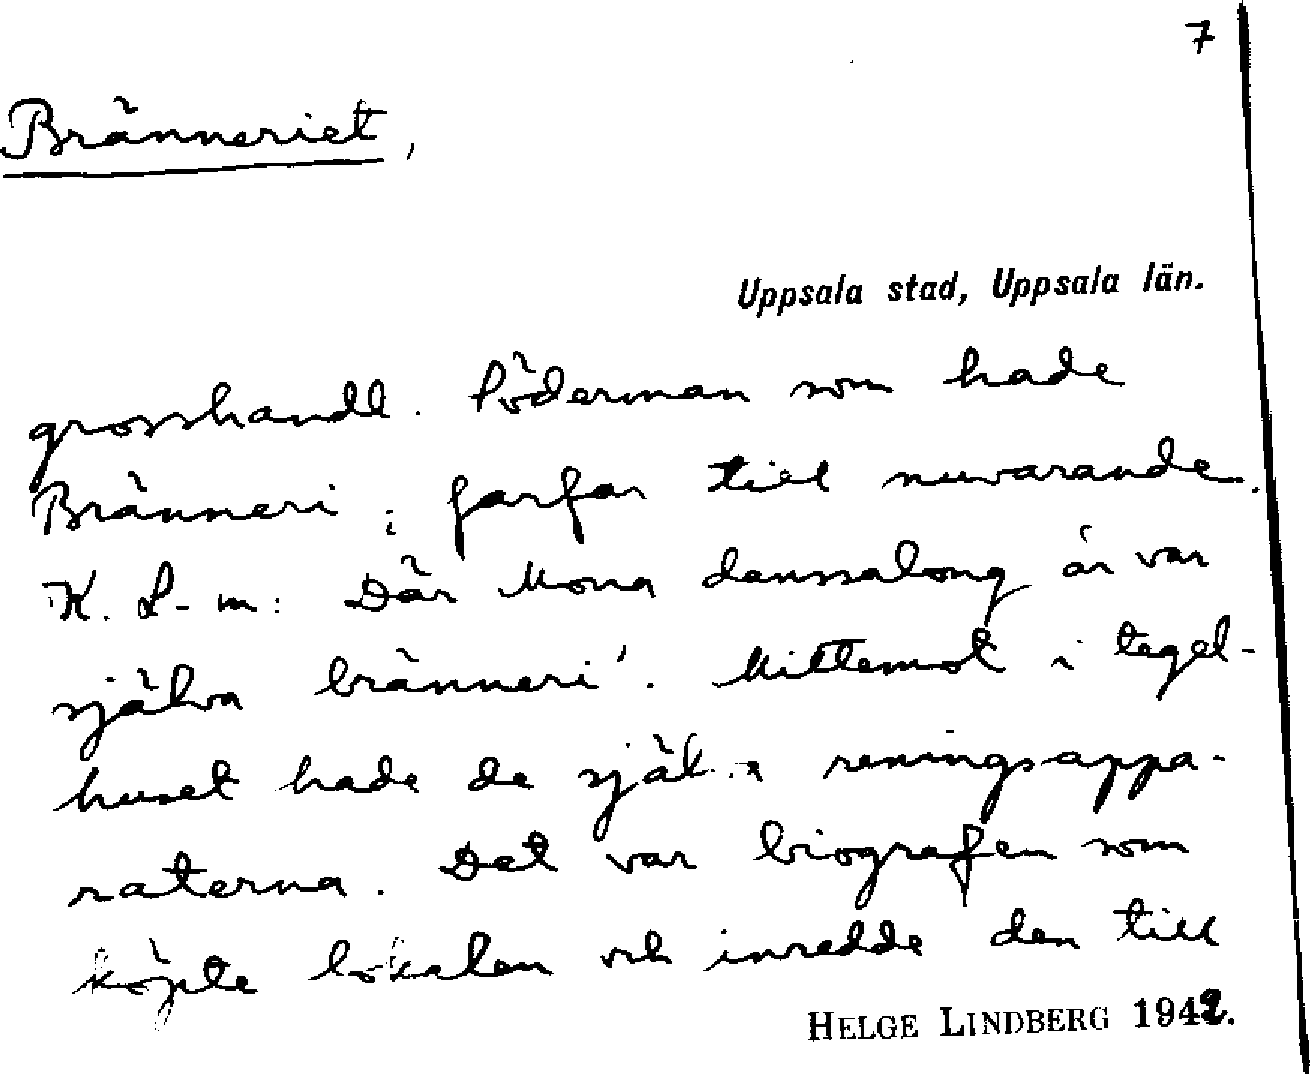 7
Bränneriet,
Uppsala stad, Uppsala län.
grosshandl. Söderman som hade
Bränneri; farfar till nuvarande
K. S-m: Där Mona danssalong är var
själva bränneri'. Mittemot i tegel-
huset hade de själva reningsappa-
raterna. Det var biografen som
köpte lokalen och inredde den till
HELGE LINDBERG 1942.